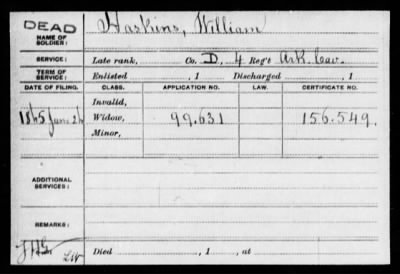 DEAD
NAME OF SOLDIER: Haskins, William
SERVICE: Late rank, Co. D, 4 Reg't Ark. Cav.
TERM OF SERVICE: Enlisted , 1 Discharged , 1
DATE OF FILING. CLASS. APPLICATION NO. LAW. CERTIFICATE NO.
Invalid,
1865 June 26 Widow, 99.631 156.549.
Minor,
ADDITIONAL SERVICES:
REMARKS:
Died , 1 , at